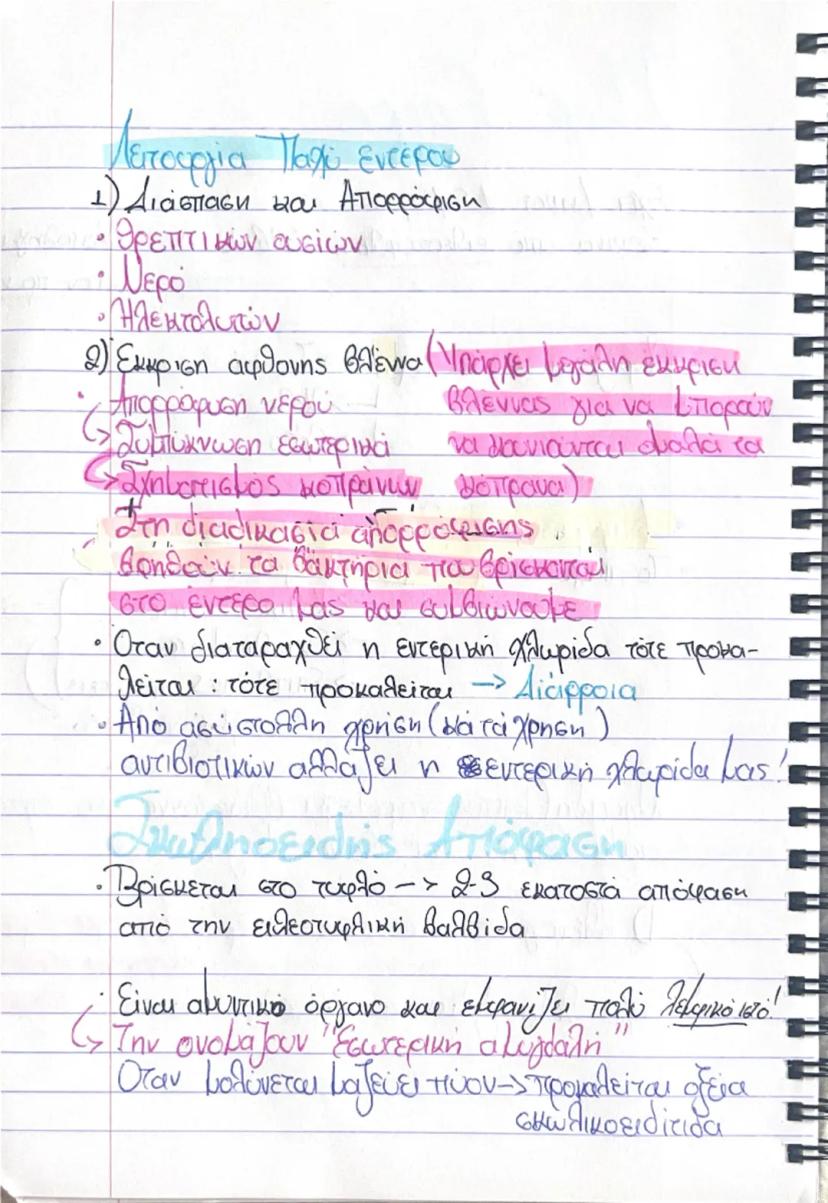 Λειτουργία Παχύ εντέρου
1) Διάσπαση και Απορρόφιση
· Θρεπτικών ουσιών
· Νερό
· Ηλεκτολυτών
2) Έκκριση άφθονης βλέννα (Υπάρχει μεγάλη έκκριση
· Απορρόφυση νερού βλέννας για να μπορούν
Συμπύκνωση εσωτερικά να κινιούνται ομαλά τα
Σχηματισμός κοπράνων κόπρανα)
+
Στη διαδικασία απορρόφισης
βοηθούν τα βακτήρια που βρίσκονται
στο έντερο μας και συμβιώνουμε
· Όταν διαταραχθεί η εντερική χλωρίδα τότε προκα-
λείται : τότε προκαλείται → Διάρροια
· Από ασύστολλη χρήση (κατάχρηση)
αντιβιοτικών αλλάζει η εντερική χλωρίδα μας!
Σκωληοειδής Απόφαση
· Βρίσκεται στο τυφλό -> 2-3 εκατοστά απόφαση
από την ειλεοτυφλική βαλβίδα
· Είναι αμυντικό όργανο και εμφανίζει πολύ λεμφικό ιστό!
Την ονομάζουν "Εσωτερική αμυγδαλή"
Όταν μολύνεται μαζεύει πύον -> προκαλείται οξεία
σκωλικοειδίτιδα